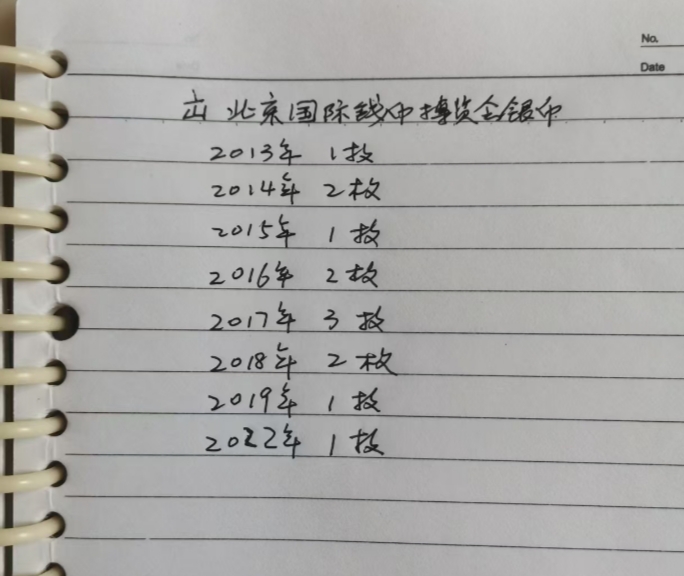 No.
Date
出 北京国际钱币博览会银币
2013年 1枚
2014年 2枚
2015年 1枚
2016年 2枚
2017年 3枚
2018年 2枚
2019年 1枚
2022年 1枚